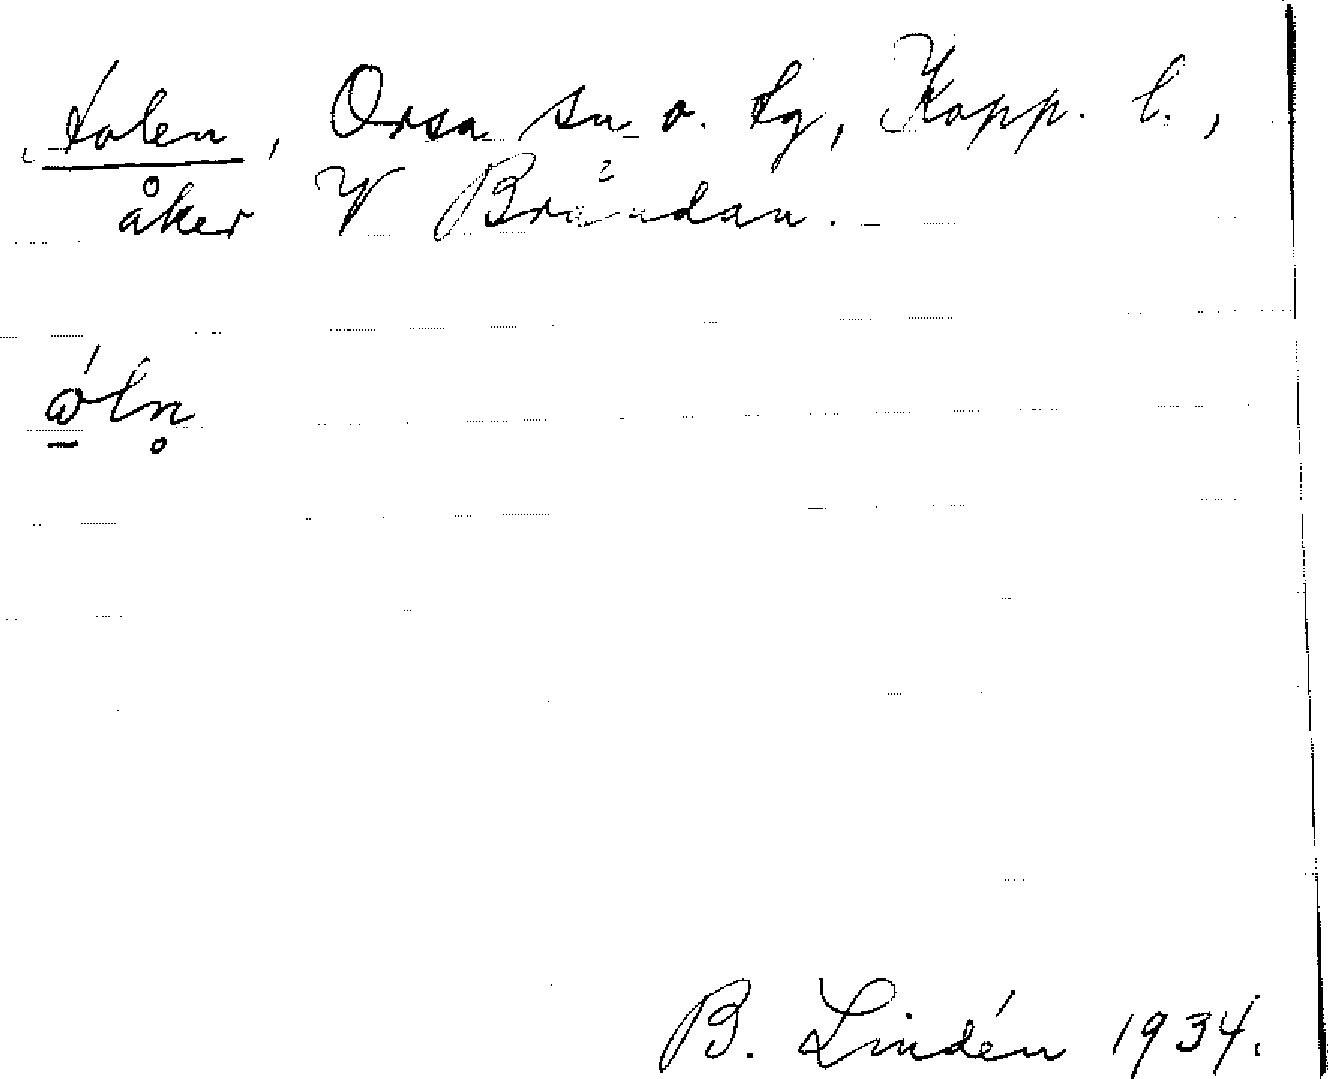 Holen, Orsa sn o. tg, Kopp. l.,
åker V Brändan.
ǿln̥
B. Lindén 1934.